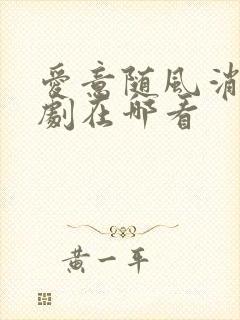 爱意随风消
劇在哪看
黄一平